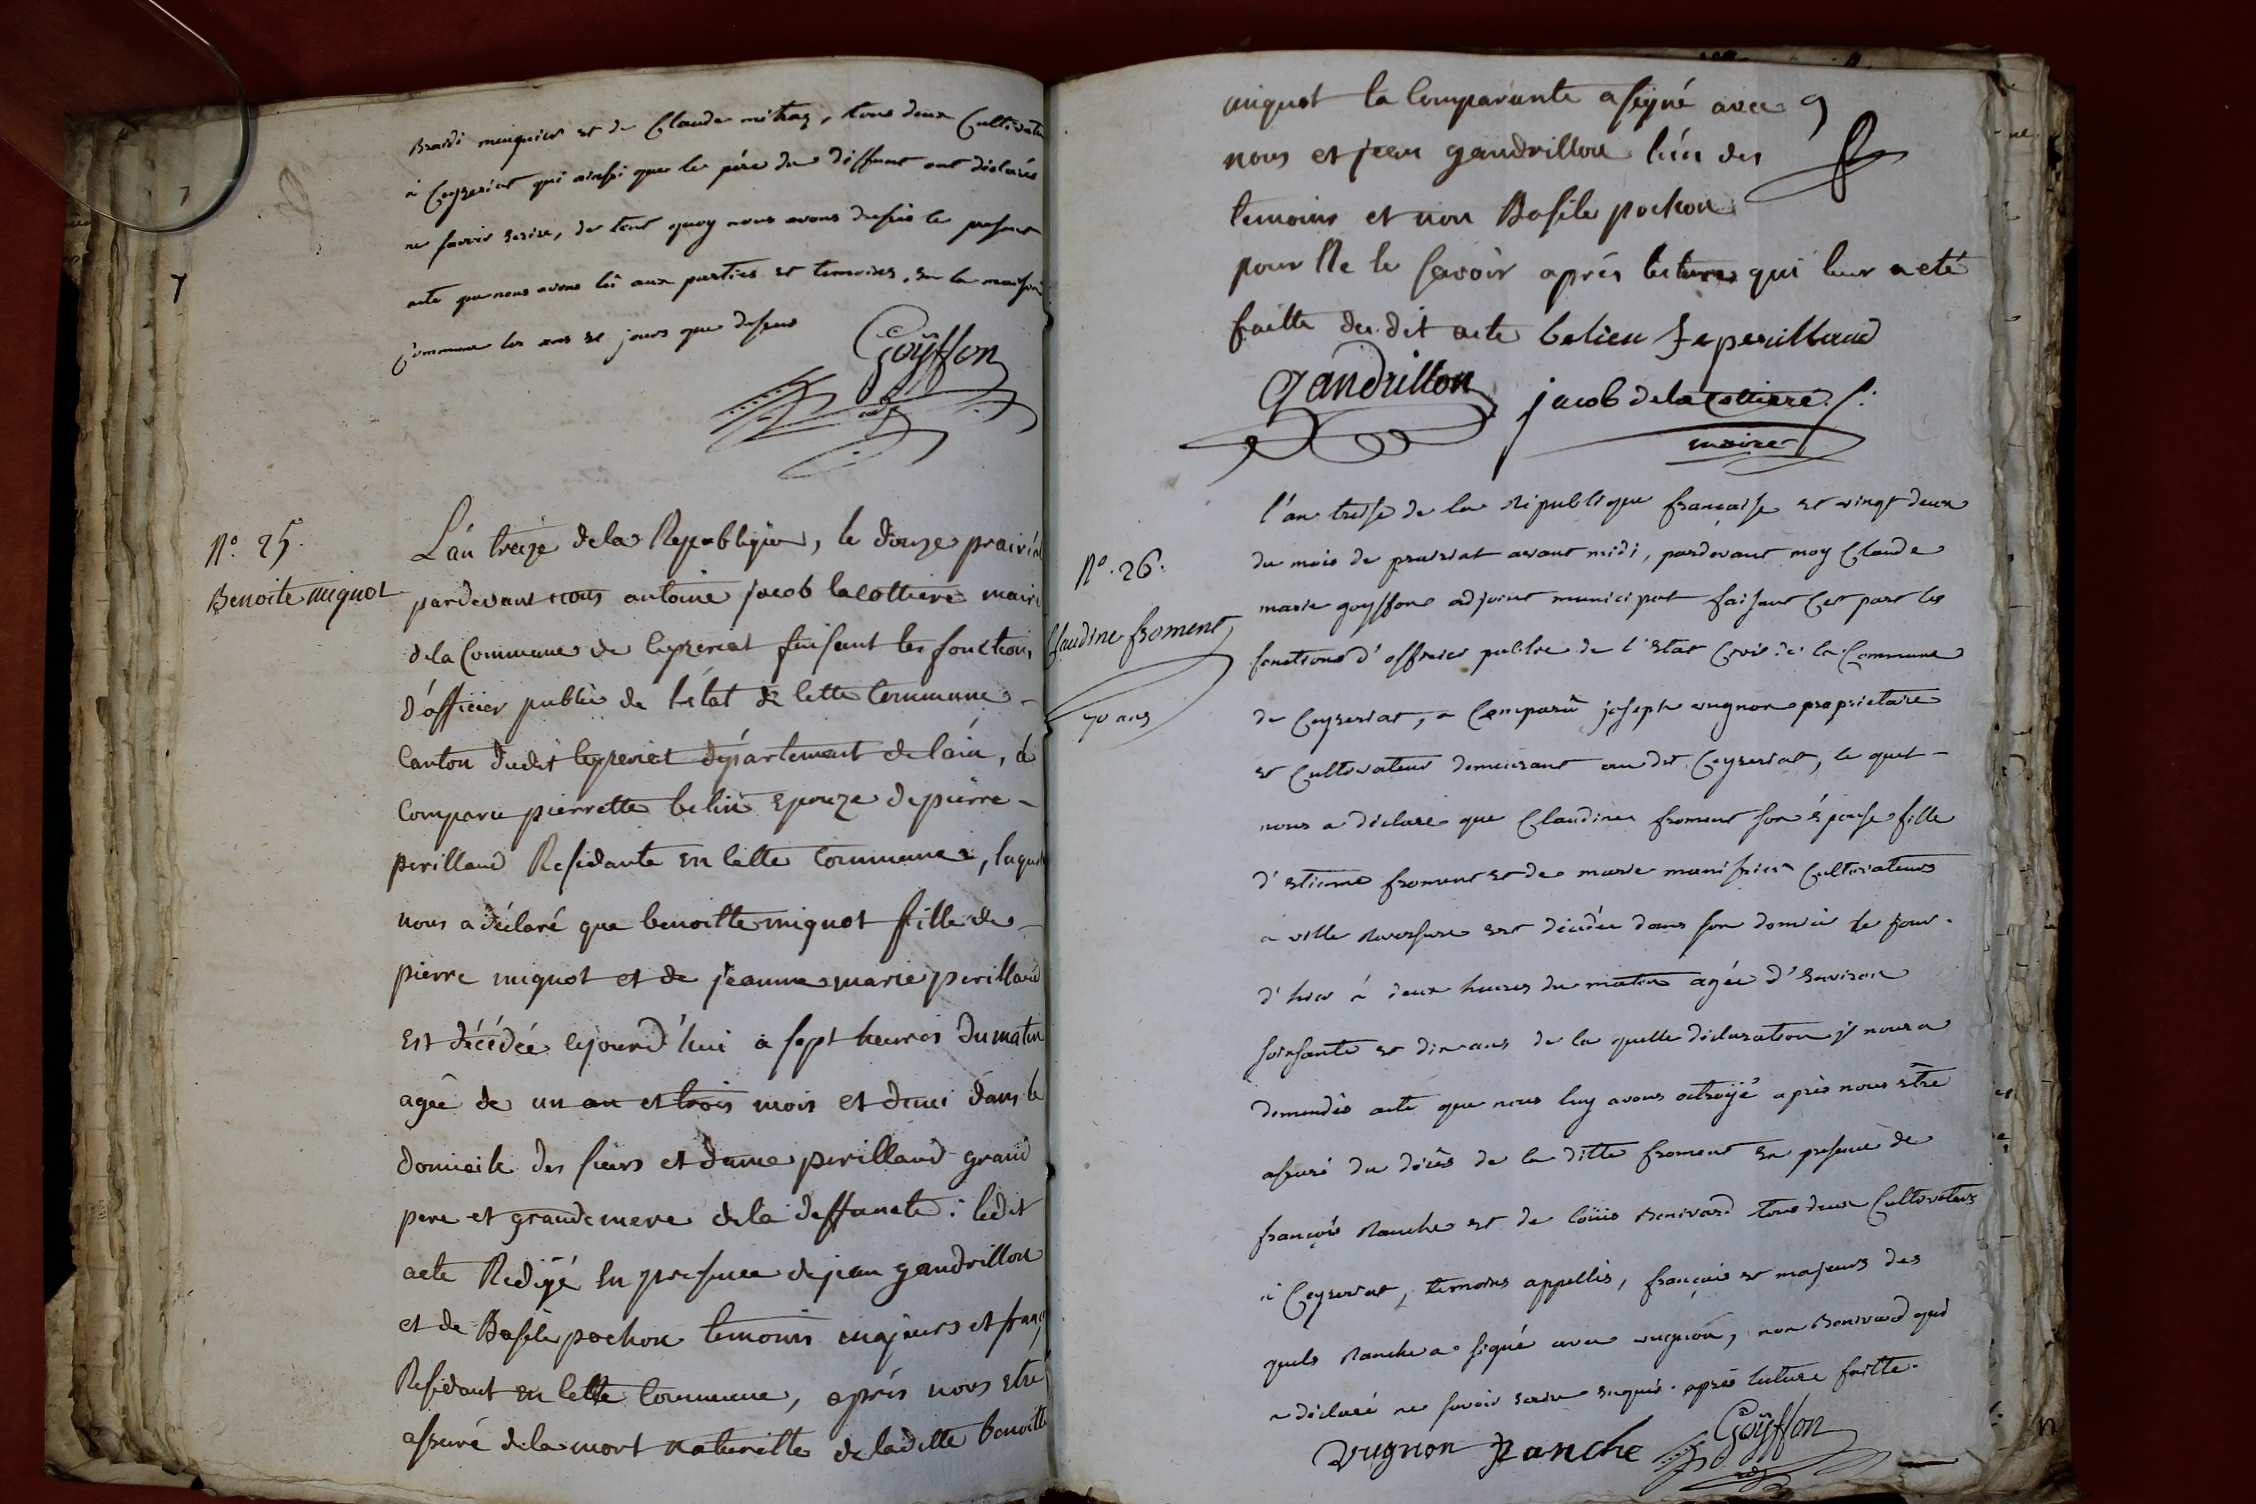 Braidi meuquier et de Claude mitraz, tous deux Cultivate
a Ceyzeriat qui ainsi que le pére du deffunt ont déclarés
ne savoir ecrire, de tout quoy nous avons dressé le present
acte que nous avons lû aux parties et temoins, en la maison
Commune les ans et jours que dessus
Goÿffon
adj
Nº. 25.
Benoite miguot
L'an treize de la République, le douze prairial
pardevant nous antoine jacob lacottiere maire
de la Commune de Ceyzeriat faisant les fonctions
d'officier public de l'état de cette Commune
Canton dudit Ceyzeriat département de l'ain, a
Comparu pierrette belin Epouze de pierre
perillaud Residante en cette Commune, laquel
nous a déclaré que benoitte miguot fille de
pierre miguot et de jeanne marie perillaud
Est décédée cejourd'hui a sept heures du matin
agée de un an et trois mois et demi dans le
domicile des sieurs et dame perillaud grand
pere et grande mere de la deffuncte : ledit
acte Redigé en presence de jean gandrillon
et de Basile pochon temoins majeurs et franç
Residant en cette Commune, après nous etre
assuré de la mort naturelle de la ditte benoitte
miguot la Comparante a signé avec
nous et jean gandrillon l'un des
temoins et non Basile pochon
pour Ne le savoir après lecture qui leur a eté
faitte du dit acte belien fe perillaud
gandrillon
jacob de la Cottiere
maire
Nº. 26.
Claudine froment
70 ans
l'an treise de la République française et vingt deux
du mois de prairial avant midi, pardevant moy Claude
marie goyffon adjoint municipal faisant Cet part les
fonctions d'officier public de l'Etat Civil de la Commune
de Ceyzeriat, a Comparû joseph vugnon propriétaire
et Cultivateur demeurant au dit Ceyzeriat, le quel
nous a déclaré que Claudine froment son épouse fille
d'etienne froment et de marie manifrier Cultivateurs
a ville Reversure est décédée dans son domicil le jour
d'hier à deux heures du matin agée d'Environ
soixsante et dix ans de la quelle déclaration il nous a
demandés acte que nous luy avons octroÿé après nous être
assuré du décès de la ditte froment en presence de
françois Ranche et de Loüis Benivard tous deux Cultivateurs
à Ceyzeriat, temoins appellés, français et majeurs des
quels Ranche a signé avec vugnon, non Benivard qui
a déclaré ne savoir ecrire enquis. après lecture faitte.
vugnon Ranche
Goÿffon
adj